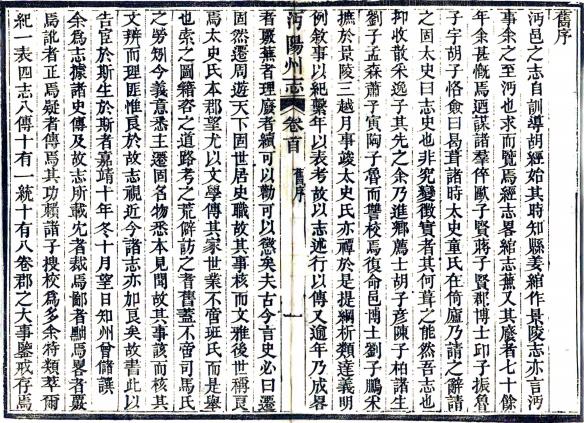 舊序
沔邑之志自訓導胡經始其時知縣姜綰作景陵志亦言沔
事余之至沔也求而覽焉經志畧綰志蕪又其廢者七十餘
年余甚慨焉迺謀諸羣倅獻子賢蔣子賢郡博士邱子振魯
子宇胡子恪僉曰曷葺諸時太史童氏在倚廬乃請之辭請
之固太史曰志史也非究變徵實者其何葺之能然吾志也
抑收散采逸子其先之余乃進鄉薦士胡子彦陳子柏諸生
劉子孟森蕭子寅陶子魯而讐校焉復命邑博士劉子鵬采
摭於景陵三越月事竣太史氏亦禫於是提綱析類達義明
例敘事以紀繫年以表考故以志述行以傳又逾年乃成畧
沔陽州志 卷首 舊序 一
者嚴蕪者理廢者續可以勸可以懲矣夫古今言史必曰遷
固然遷周遊天下固世居史職故其事核而文雅後世稱良
焉太史氏本郡望尤以文學傳其家世業不啻班氏而是舉
也索之圖籍咨之道路考之荒僻訪之耆舊蓋不啻司馬氏
之勞矧今義意悉主遷固名物悉本見聞故其事該而核其
文辨而理匪惟良於故志視近今諸志亦加良矣故書此以
告宦於斯生於斯者嘉靖十年冬十月望日知州曾儲譔
余為志據諸史傳及故志所載冘者裁焉鄙者黜焉畧者嚴
焉訛者正焉疑者傳焉其功賴諸子搜校為多余特類萃爾
紀一表四志八傳十有一統十有八卷郡之大事鑒戒存焉